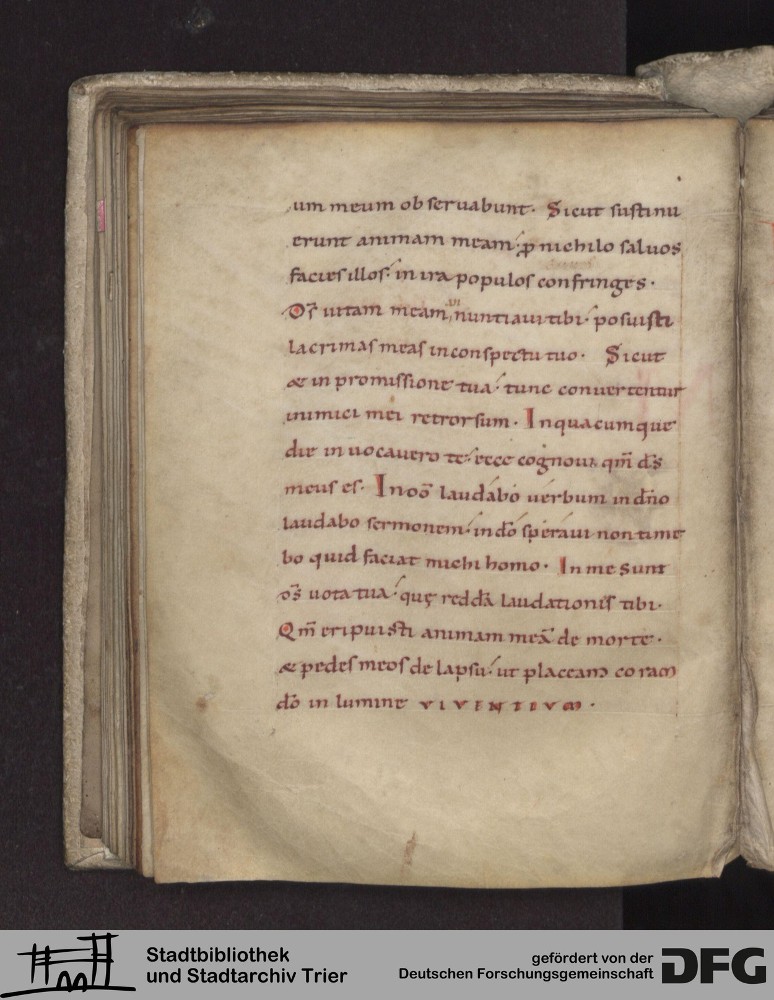 um meum observabunt. Sicut sustinu
erunt animam meam; ꝓ nichilo salvos
facies illos; in ira populos confringes.
Ds̄ vitam meam nuntiavi tibi; posuisti
lacrimas meas in conspectu tuo. Sicut
& in promissione tua; tunc convertentur
inimici mei retrorsum. In quacumque
die invocavero te; ecce cognovi qm̄ ds̄
meus es. In dō laudabo verbum in dn̄o
laudabo sermonem; in dō speravi non time
bo quid faciat michi homo. In me sunt
ds̄ vota tua; quę reddā laudationis tibi.
Qm̄ eripuisti animam meā de morte.
& pedes meos de lapsu; ut placeam coram
dō in lumine VIVENTIUM.
Stadtbibliothek
und Stadtarchiv Trier
gefördert von der
Deutschen Forschungsgemeinschaft
DFG